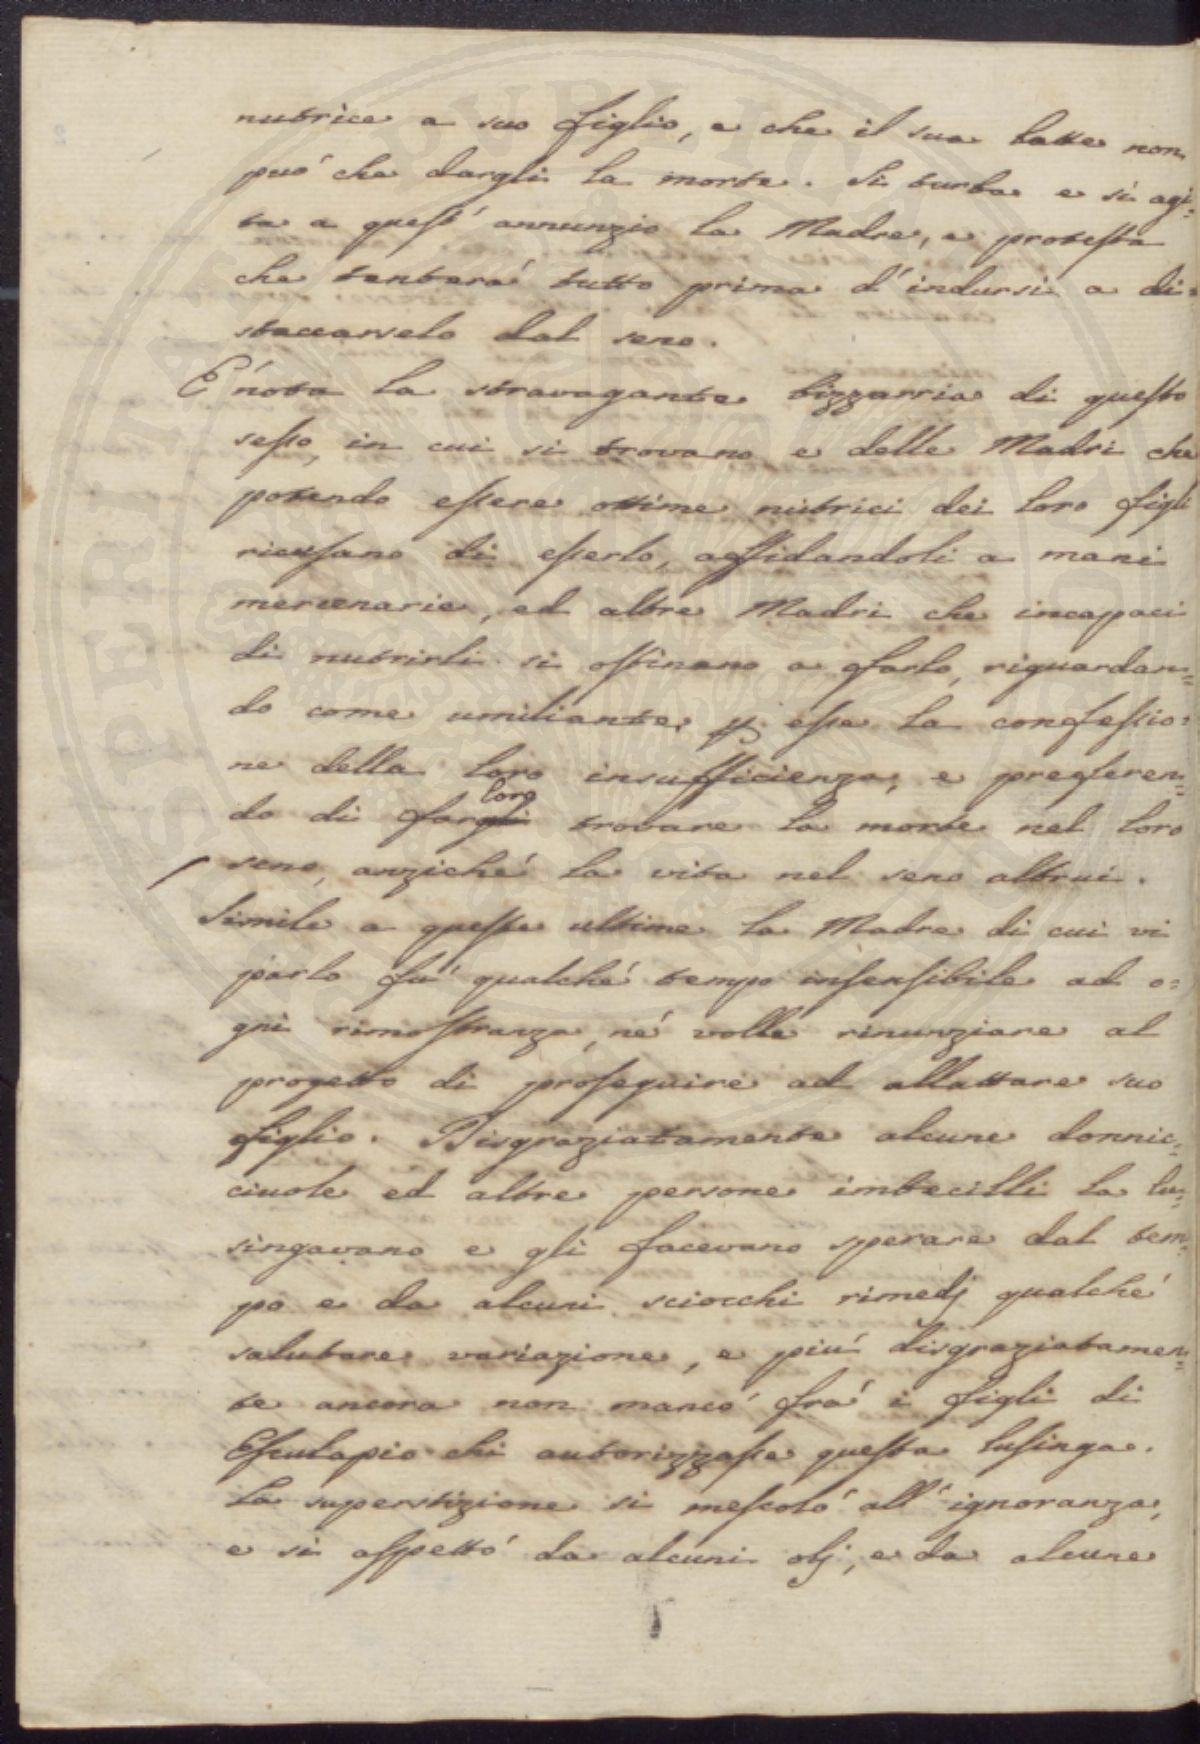 nutrice a suo figlio, e che il suo latte non
può che dargli la morte. Si turba e si agi=
ta a quest' annunzio la Madre, e protesta
che tenterà tutto prima d'indursi a di=
staccarselo dal seno.
È nota la stravagante bizzarria di questo
sesso, in cui si trovano e delle Madri che
potendo essere ottime nutrici dei loro figli
ricusano di esserlo, affidandoli a mani
mercenarie, ed altre Madri che incapaci
di nutrirli si ostinano a farlo, riguardan=
do come umiliante p esse la confessio=
ne della loro insufficienza, e preferen=
do di fargli loro trovare la morte nel loro
seno, anziché la vita nel seno altrui.
Simile a queste ultime la Madre di cui vi
parlo fù qualché tempo insensibile ad o=
gni rimostranza, né volle rinunziare al
progetto di proseguire ad allattare suo
figlio. Disgraziatamente alcune donnic=
ciuole ed altre persone imbecilli la lu=
singavano e gli facevano sperare dal tem=
po e da alcuni sciocchi rimedj qualché
salutare variazione, e più disgraziatamen=
te ancora non mancò frà i figli di
Esculapio chi autorizzasse questa lusinga.
La superstizione si mescolò all' ignoranza,
e si aspettò da alcuni olj, e da alcune
SPERITAS PUBLICA